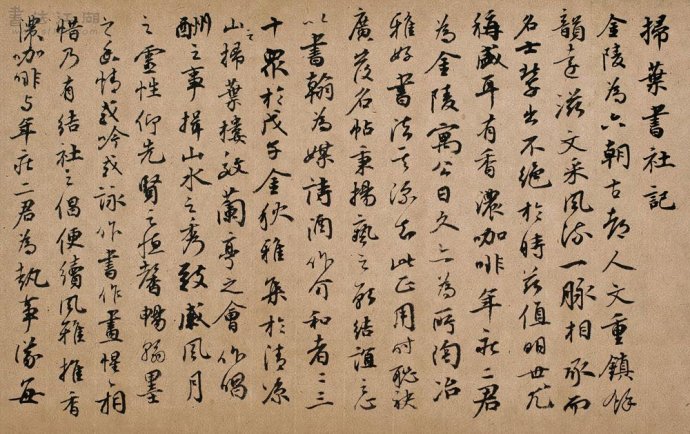 掃葉書社記
金陵為六朝古都人文重鎮餘
韻滋文采風流一脈相承而
名士輩出不絕於時茲值明世尤
稱盛耳有香濃咖啡年莊二君
為金陵寓公日久亦為所陶冶
雅好書法其源此正用時
廣名帖秉揚藝之結誼
以書翰為媒詩酒作介和者二三
十眾於戊子金秋雅集於清涼
山之掃葉樓效蘭亭之會作唱
酬之事揖山水之秀發感風月
之靈性仰先賢之恒馨暢翰墨
之幽情或吟或詠作書作畫惺惺相
惜乃有結社之倡便續風雅推香
濃咖啡与年莊二君為執事每